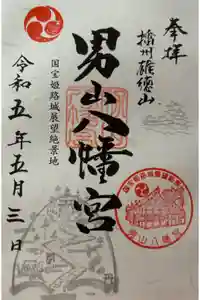 奉拝
播州雄徳山
男山八幡宮
国宝姫路城展望絶景地
令和五年五月三日
男山八幡宮